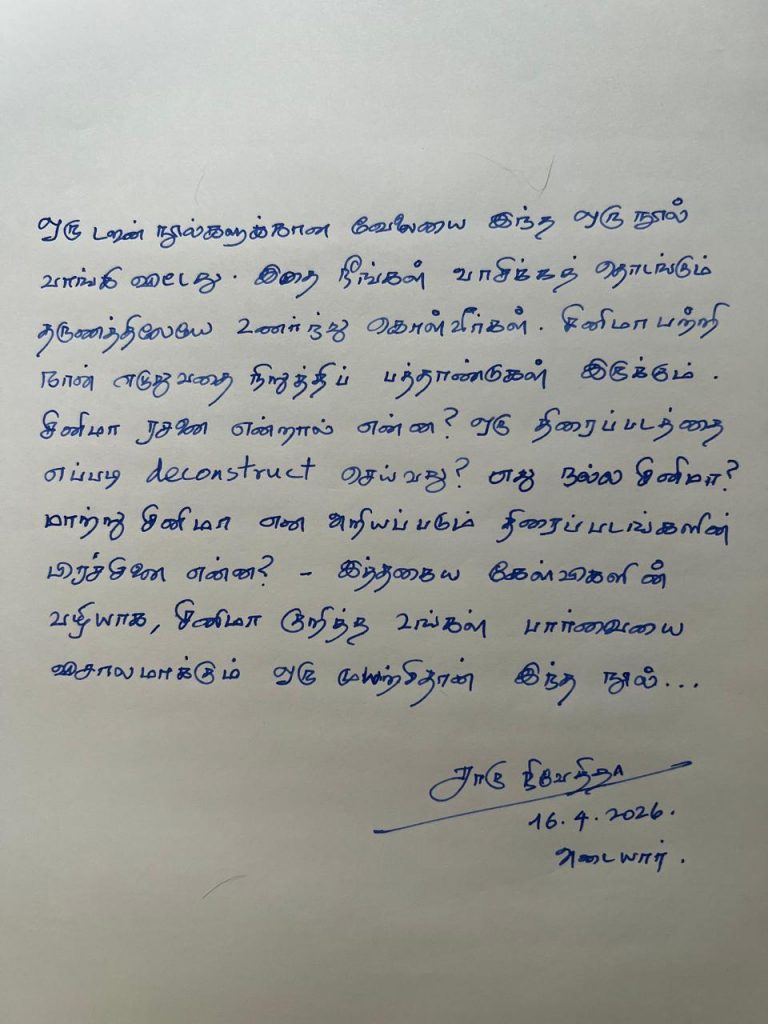 ஒரு டஜன் நூல்களுக்கான வேலையை இந்த ஒரு நூல்
வாங்கி விட்டது. இதை நீங்கள் வாசிக்கத் தொடங்கும்
தருணத்திலேயே உணர்ந்து கொள்வீர்கள். சினிமா பற்றி
நான் எழுதுவதை நிறுத்திப் பத்தாண்டுகள் இருக்கும்.
சினிமா ரசனை என்றால் என்ன? ஒரு திரைப்படத்தை
எப்படி deconstruct செய்வது? எது நல்ல சினிமா?
மாற்று சினிமா என அறியப்படும் திரைப்படங்களின்
பிரச்சினை என்ன? - இத்தகைய கேள்விகளின்
வழியாக, சினிமா குறித்த உங்கள் பார்வையை
விசாலமாக்கும் ஒரு முயற்சிதான் இந்த நூல்...
சாரு நிவேதிதா
16.4.2026.
அடையார்.